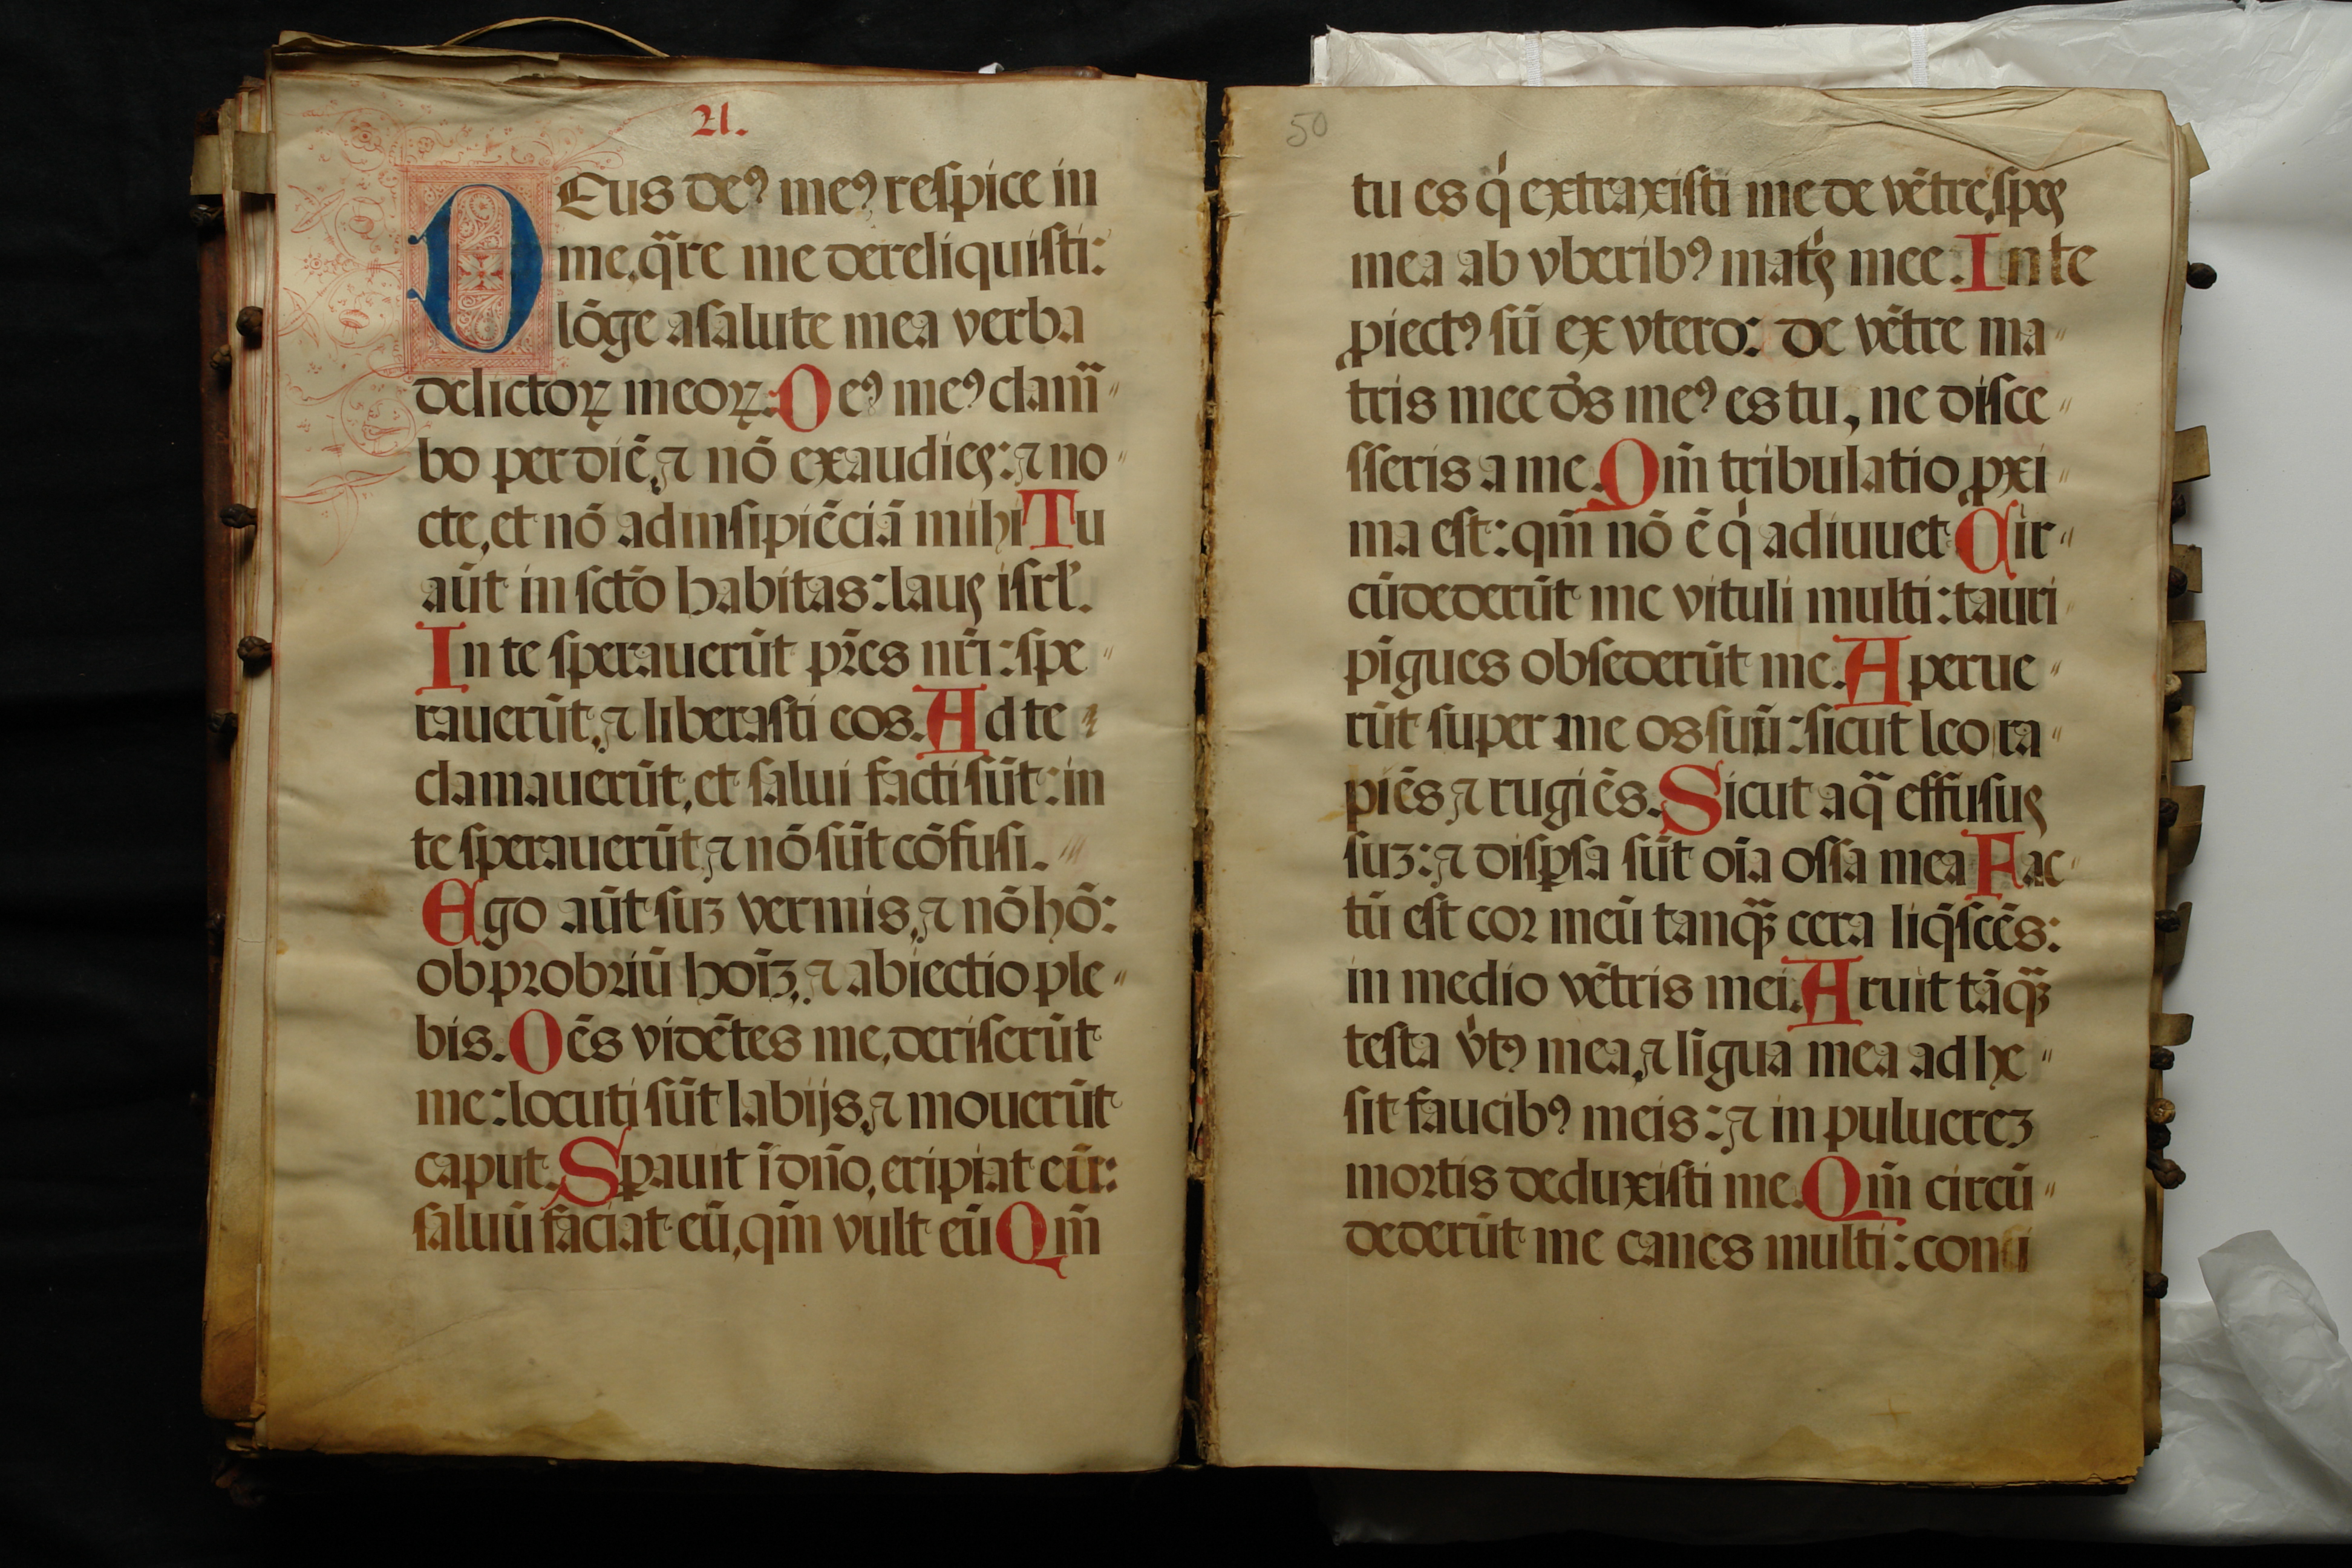 21.
DEus de⁹ me⁹ respice in
me, q̈re me dereliquisti:
lōge a salute mea verba
delictoꝝ meoꝝ. De⁹ me⁹ clam̄
bo per diē, ⁊ nō exaudies: ⁊ no
cte, et nō ad insipiēciā mihi Tu
aūt in sctō habitas: laus isrl̓.
In te sperauerūt pr̄es nr̄i: spe
rauerūt, ⁊ liberasti eos. Ad te
clamauerūt, et salui facti sūt: in
te sperauerūt, ⁊ nō sūt cōfusi.
Ego aūt suꝫ vermis, ⁊ nō hō:
obprobriū hoīꝫ, ⁊ abiectio ple
bis. Oēs vidētes me, deriserūt
me: locuti sūt labijs, ⁊ mouerūt
caput. Sꝑauit ī dn̄o, eripiat eū:
saluū faciat eū, qm̄ vult eū Qm̄
50
tu es q̍ extraxisti me de vētre, spes
mea ab vberib⁹ mat̍s mee. In te
ꝓiect⁹ sū ex vtero: de vētre ma
tris mee ds̄ me⁹ es tu, ne disce
sseris a me. Qm̄ tribulatio ꝓxi
ma est: qm̄ nō ē q̍ adiuuet Cir
cūdederūt me vituli multi: tauri
pīgues obsederūt me. Aperue
rūt super me os suū: sicut leo ra
piēs ⁊ rugiēs. Sicut aq̈ effusus
suꝫ: ⁊ disꝑsa sūt oīa ossa mea Fac
tū est cor meū tanq̈ꝫ cera liq̄scēs:
in medio vētris mei. Aruit tāq̈ꝫ
testa v̍t⁹ mea, ⁊ līgua mea adhe
sit faucib⁹ meis: ⁊ in puluereꝫ
mortis deduxisti me. Qm̄ circū
dederūt me canes multi: consi